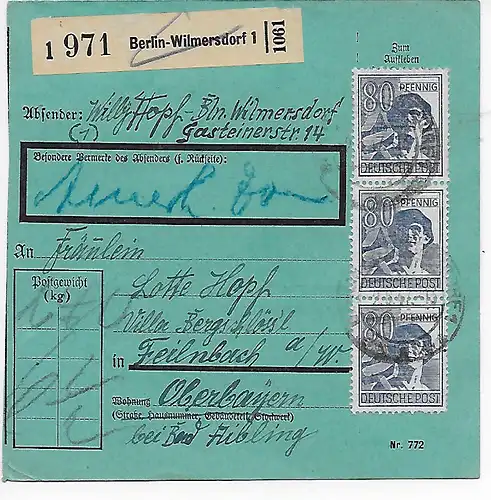 1 971 Berlin-Wilmersdorf 1 1061
Zum
Aufkleben
Absender: Willy Hopf - Bln. Wilmersdorf
(1) Gasteinerstr. 14
Besondere Vermerke des Absenders (s. Rückseite):
An Fräulein
Lotte Hopf
Villa Bergschlößl
in Feilnbach a/W
Oberbayern
Wohnung
(Straße, Hausnummer, Gebäudeteil, Stockwerk)
bei Bad Aibling
Postgewicht
(kg)
80 PFENNIG
DEUTSCHE POST
80 PFENNIG
DEUTSCHE POST
80 PFENNIG
DEUTSCHE POST
Nr. 772